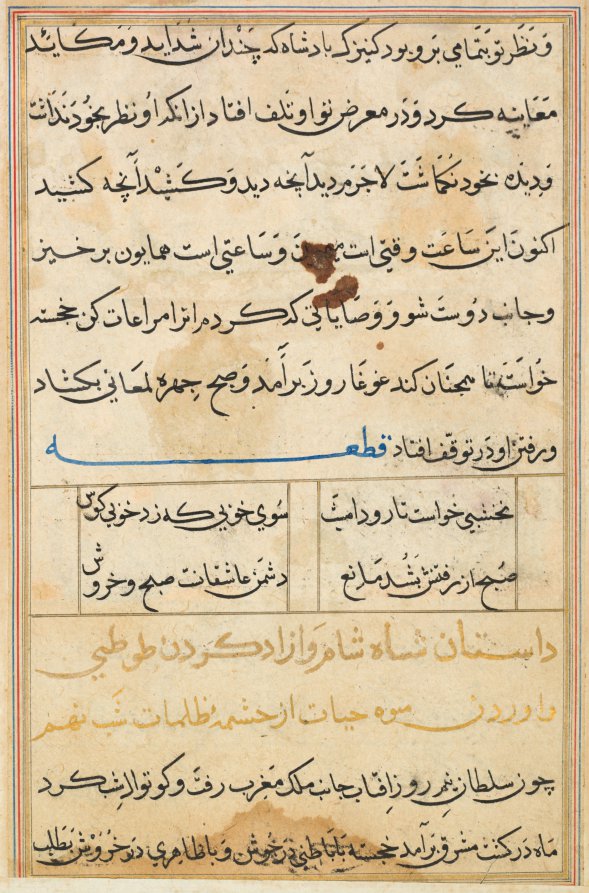 و نظر تو بتمامی برو بود کنیزک بادشاه که چندان شداید و مکاید
معاینه کرد و در معرض تو او تلف افتاد از انکه او نظر بخود نداشت
و دیده بخود نکماشت لاجرم دید آنچه دید و کشید آنچه کشید
اکنون این ساعت وقتی است و ساعتی است همایون برخیز
و جانب دوست شو و وصایائی که کردم انرا مراعات کن خجسته
خواست تا همچنان کند غوغا روز برآمد و صبح چهره لمعانی بکشاد
و رفتن او در توقف افتاد قطعه
نخشبی خواست تا رود امشب سوی خوبی که زد خوبی کوس
صبح از رفتنش بشد مانع دشمن عاشقانست صبح و خروش
داستان شاه شام و ازاد کردن طوطی
و اوردن میوه حیات از چشمه ظلمات شب نهم
چون سلطان نیمروز افتاب جانب ملک مغرب رفت و کوتوال شب کرد
ماه در کشت مشرق برآمد خجسته با باطنی در جوش و با ظاهری در خروش بطلب